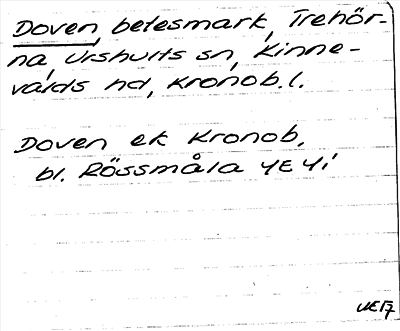 Doven, betesmark, Trehör-
na, Urshults sn, Kinne-
valds hd, Kronob. l.
Doven ek Kronob,
bl. Rössmåla 4E 4i